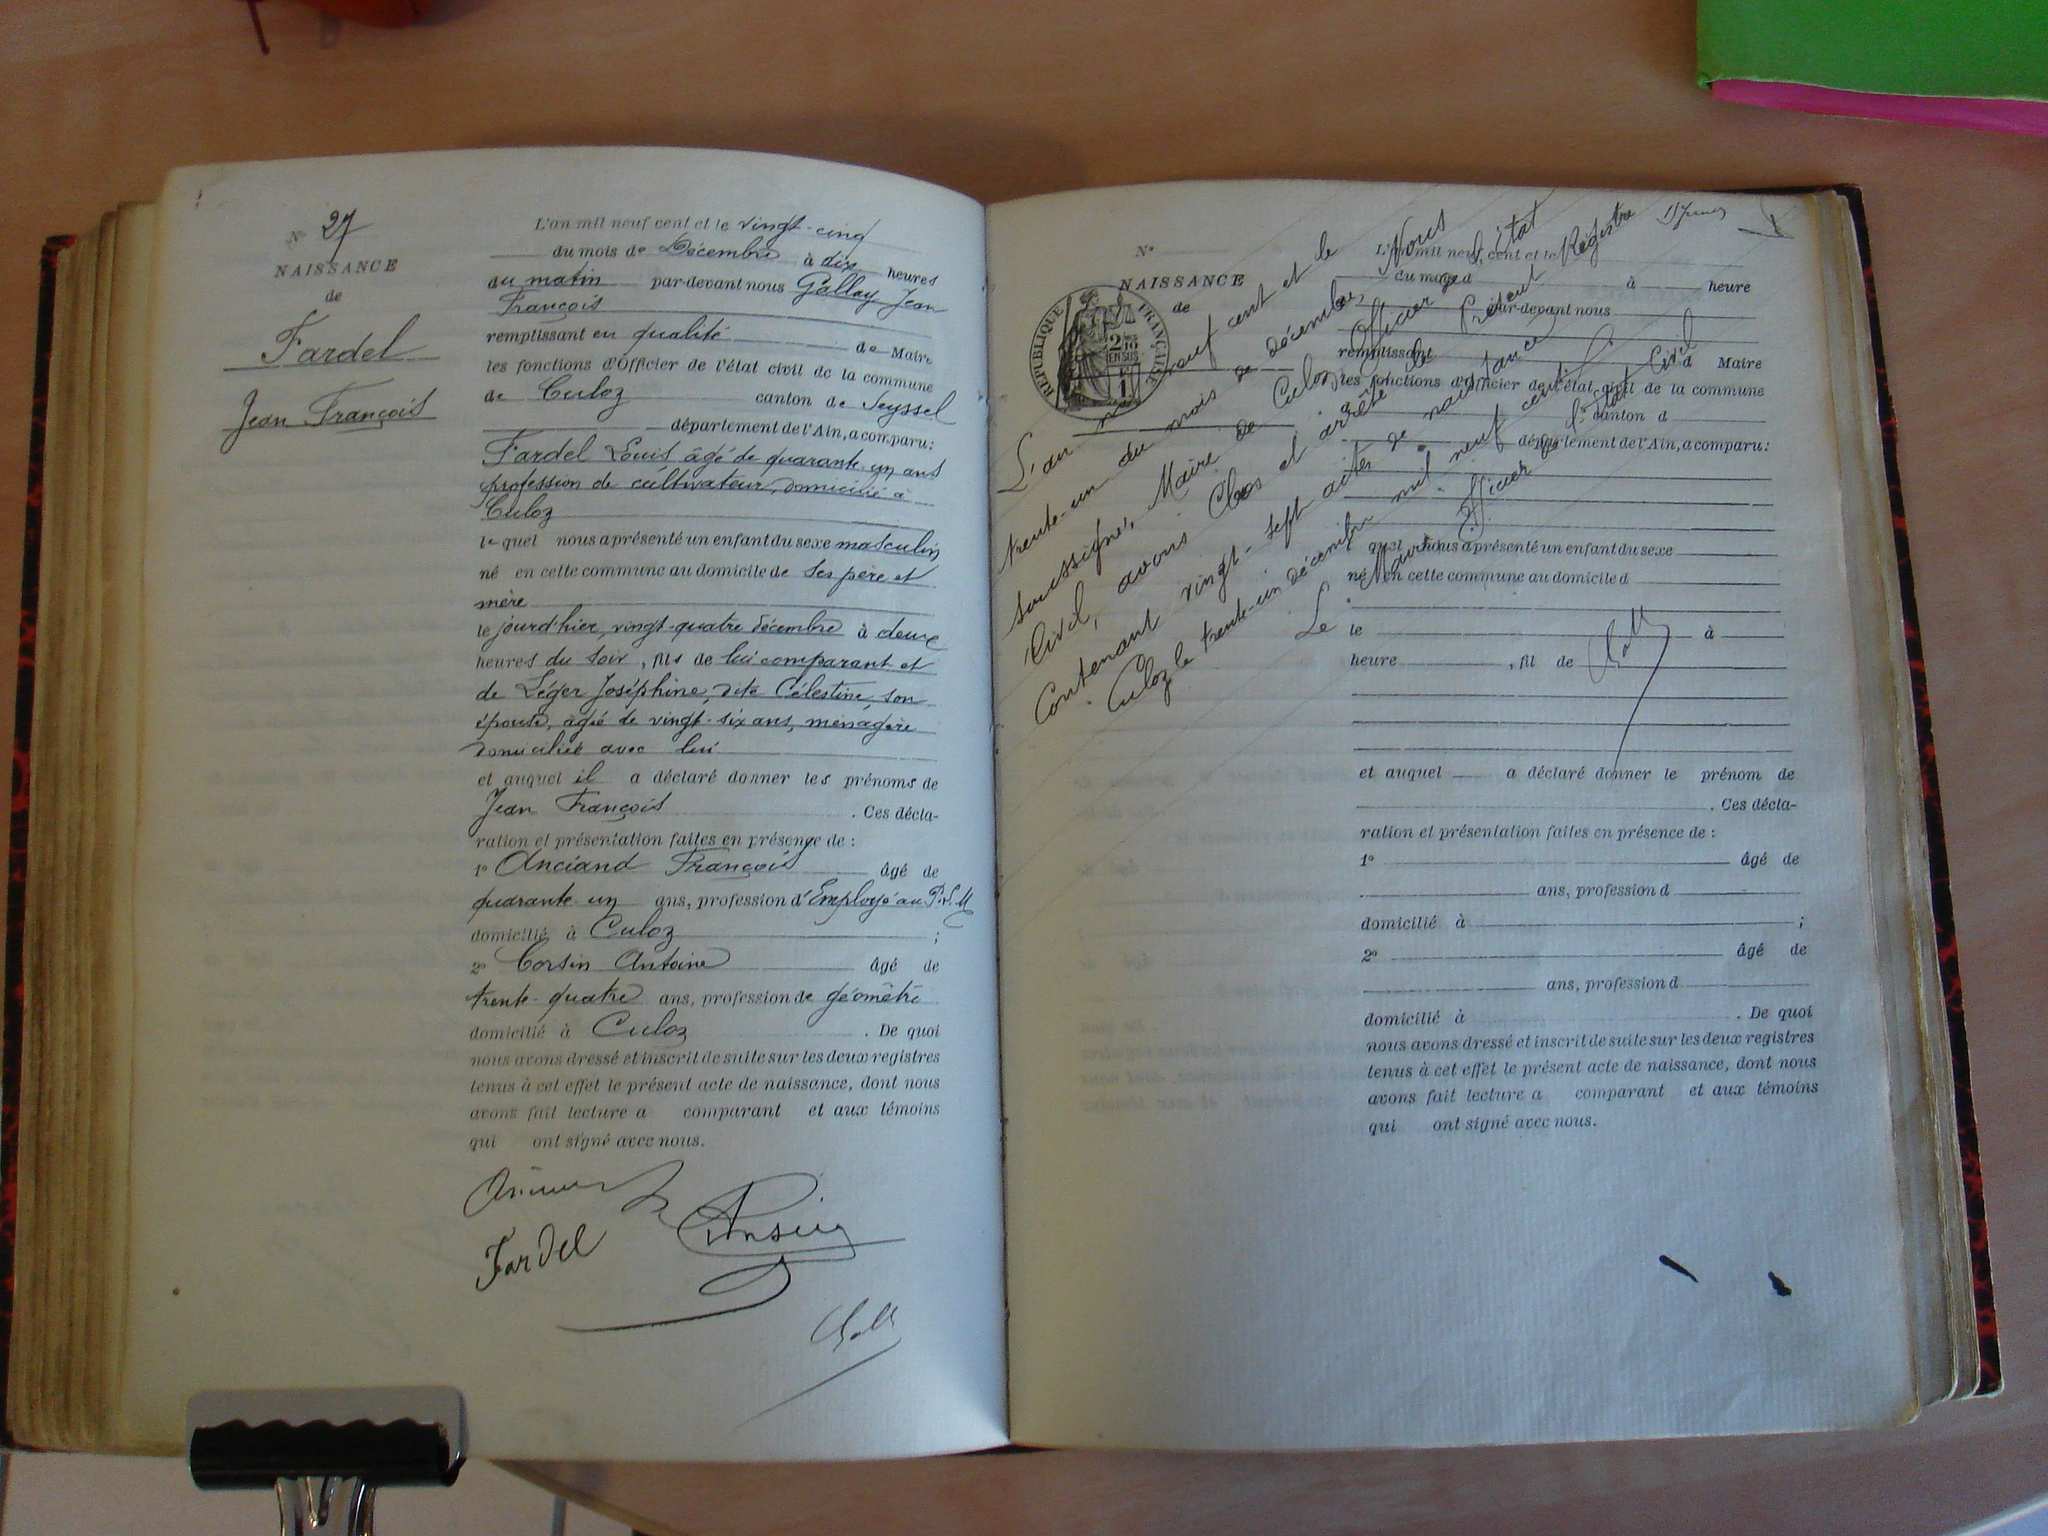 N° 27
NAISSANCE
de
Fardel
Jean François
L'an mil neuf cent et le vingt-cinq
du mois de Décembre à dix heures
du matin par-devant nous Gallay Jean
François
remplissant en qualité de Maire
les fonctions d'Officier de l'état civil de la commune
de Culoz canton de Seyssel
département de l'Ain, a comparu:
Fardel Louis âgé de quarante-un ans
profession de cultivateur, domicilié à
Culoz
le quel nous a présenté un enfant du sexe masculin
né en cette commune au domicile de ses père et
mère
le jourd'hier, vingt-quatre décembre à deux
heures du soir, fils de lui comparant et
de Léger Joséphine, dite Célestine, son
épouse, âgée de vingt-six ans, ménagère
domiciliée avec lui
et auquel il a déclaré donner les prénoms de
Jean François . Ces décla-
ration et présentation faites en présence de :
1° Anciand François âgé de
quarante un ans, profession d'Employé au P.L.M
domicilié à Culoz ;
2° Corsin Antoine âgé de
trente-quatre ans, profession de géomètre
domicilié à Culoz . De quoi
nous avons dressé et inscrit de suite sur les deux registres
tenus à cet effet le présent acte de naissance, dont nous
avons fait lecture a comparant et aux témoins
qui ont signé avec nous.
Fardel
N°
NAISSANCE
de
RÉPUBLIQUE FRANÇAISE
2/10
EN SUS
L'an mil neuf cent et le
du mois d à heure
par-devant nous
remplissant d Maire
les fonctions d'Officier de l'état civil de la commune
d canton d
département de l'Ain, a comparu:
quel nous a présenté un enfant du sexe
né en cette commune au domicile d
le à
heure , fil de
et auquel a déclaré donner le prénom de
. Ces décla-
ration et présentation faites en présence de :
1° âgé de
ans, profession d
domicilié à ;
2° âgé de
ans, profession d
domicilié à . De quoi
nous avons dressé et inscrit de suite sur les deux registres
tenus à cet effet le présent acte de naissance, dont nous
avons fait lecture a comparant et aux témoins
qui ont signé avec nous.
L'an mil neuf cent et le
trente-un du mois de décembre, Nous
soussigné, Maire de Culoz, Officier de l'état
Civil, avons Clos et arrêté le présent Registre
Contenant vingt-sept actes de naissance
Culoz le trente-un décembre mil neuf cent
Le Maire Officier de l'état Civil